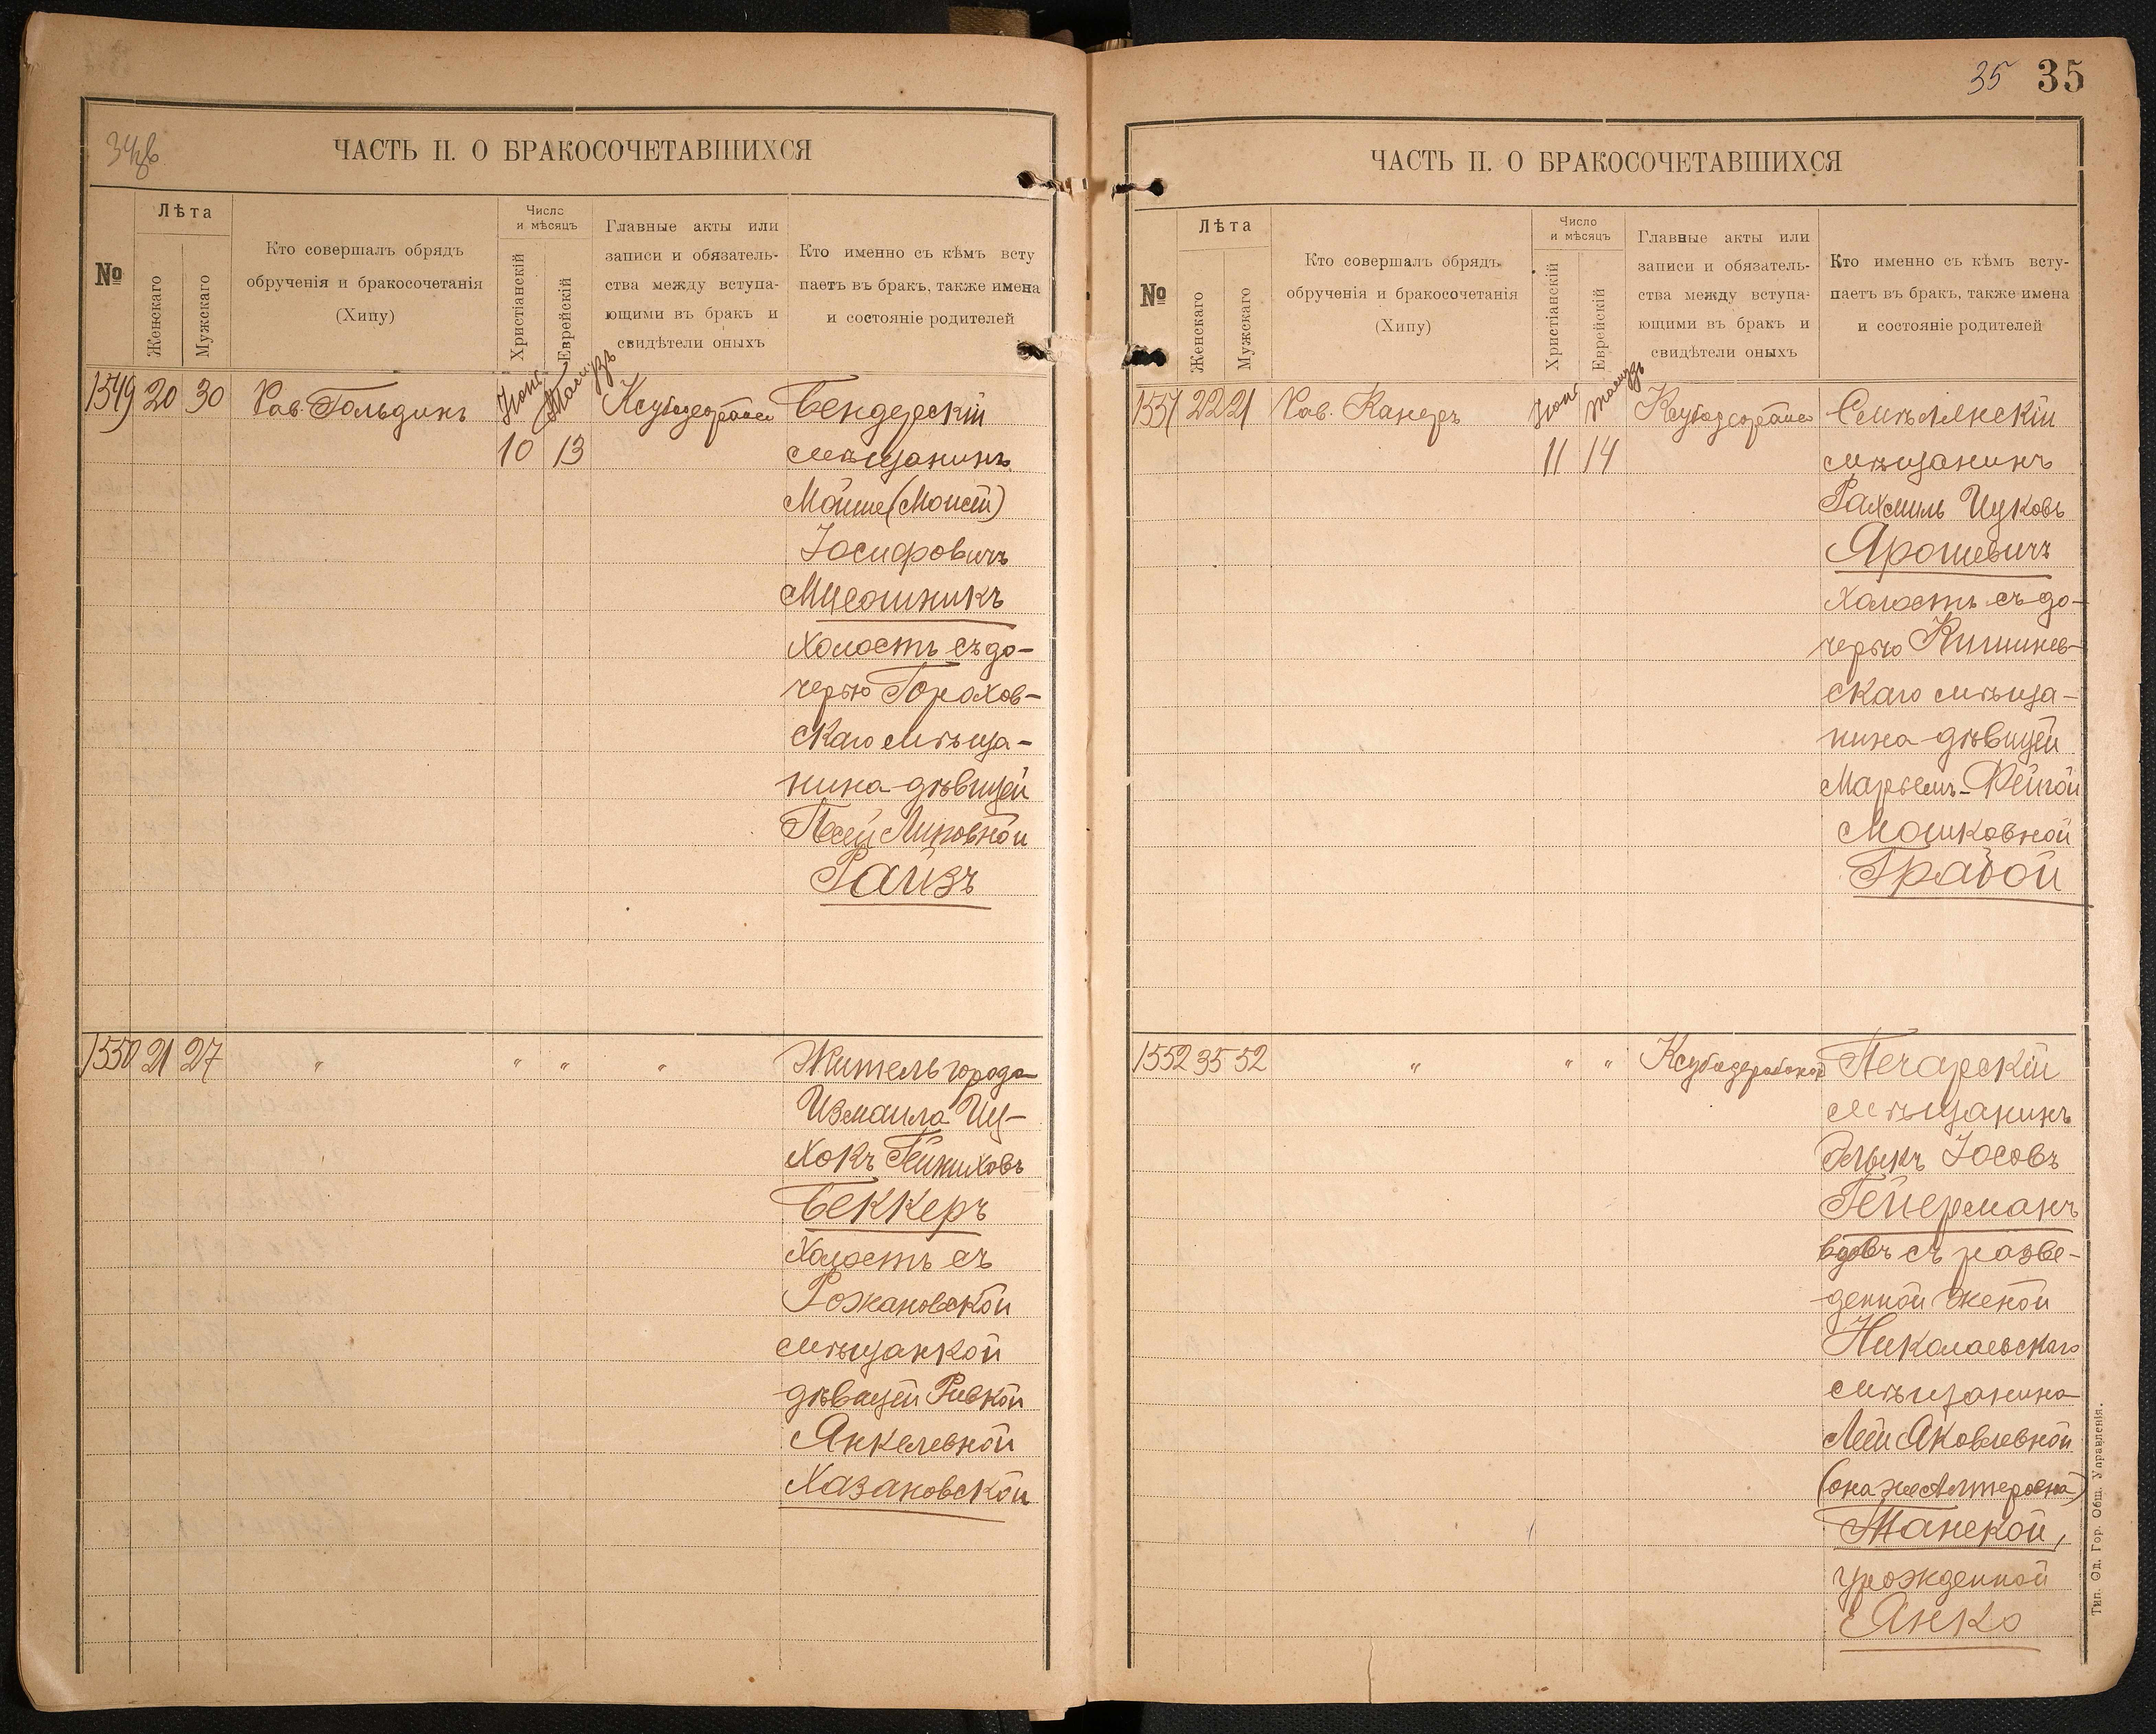 ЧАСТЬ II. О БРАКОСОЧЕТАВШИХСЯ
№
Лѣта
Женскаго
Мужскаго
Кто совершалъ обрядъ
обрученія и бракосочетанія
(Хипу)
Число
и мѣсяцъ
Христіанскій
Еврейскій
Главные акты или
записи и обязатель-
ства между вступа-
ющими въ бракъ и
свидѣтели оныхъ
Кто именно съ кѣмъ всту
паетъ въ бракъ, также имена
и состояніе родителей
1549 20 30 Рав. Гольдинъ
10 13
Бендерскій
мѣщанинъ
Мойше (Моисей)
Іосифовичъ
холостъ съ до-
черью Горохов-
скаго мѣща-
нина-дѣвицей
Райзъ
1550 21 27 " " " "
Житель города
Измаила Иц-
хокъ
Беккеръ
холостъ съ
Рожановской
мѣщанкой
дѣвицей Ривкой
Янкелевной
Хазановской
35 35
ЧАСТЬ II. О БРАКОСОЧЕТАВШИХСЯ
№
Лѣта
Женскаго
Мужскаго
Кто совершалъ обрядъ
обрученія и бракосочетанія
(Хипу)
Число
и мѣсяцъ
Христіанскій
Еврейскій
Главные акты или
записи и обязатель-
ства между вступа-
ющими въ бракъ и
свидѣтели оныхъ
Кто именно съ кѣмъ всту-
паетъ въ бракъ, также имена
и состояніе родителей
1551 22 21 Рав. Канеръ
11 14
мѣщанинъ
Рахмиль Ицковъ
Ярошевичъ
холостъ съ до-
черью Кишинев-
скаго мѣща-
нина-дѣвицей
Марьемъ-Фейгой
Мошковной
1552 35 52 " " "
Печарскій
мѣщанинъ
Іосовъ
Гейерманъ
вдовъ съ разве-
денной женой
Николаевскаго
мѣщанина
Леей Яковлевной
(она же Алтеровна)
урожденной
Янко
Тип. Од. Гор. Общ. Управленія.